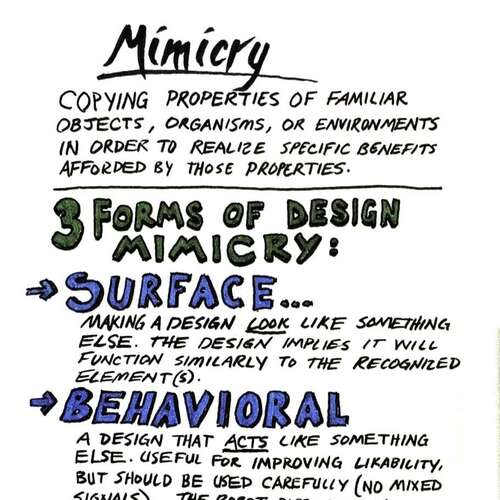 Mimicry
COPYING PROPERTIES OF FAMILIAR
OBJECTS, ORGANISMS, OR ENVIRONMENTS
IN ORDER TO REALIZE SPECIFIC BENEFITS
AFFORDED BY THOSE PROPERTIES.
3 FORMS OF DESIGN
MIMICRY:
→ SURFACE...
MAKING A DESIGN LOOK LIKE SOMETHING
ELSE. THE DESIGN IMPLIES IT WILL
FUNCTION SIMILARLY TO THE RECOGNIZED
ELEMENT(S).
→ BEHAVIORAL
A DESIGN THAT ACTS LIKE SOMETHING
ELSE. USEFUL FOR IMPROVING LIKABILITY,
BUT SHOULD BE USED CAREFULLY (NO MIXED
SIGNALS). THE ROBOT